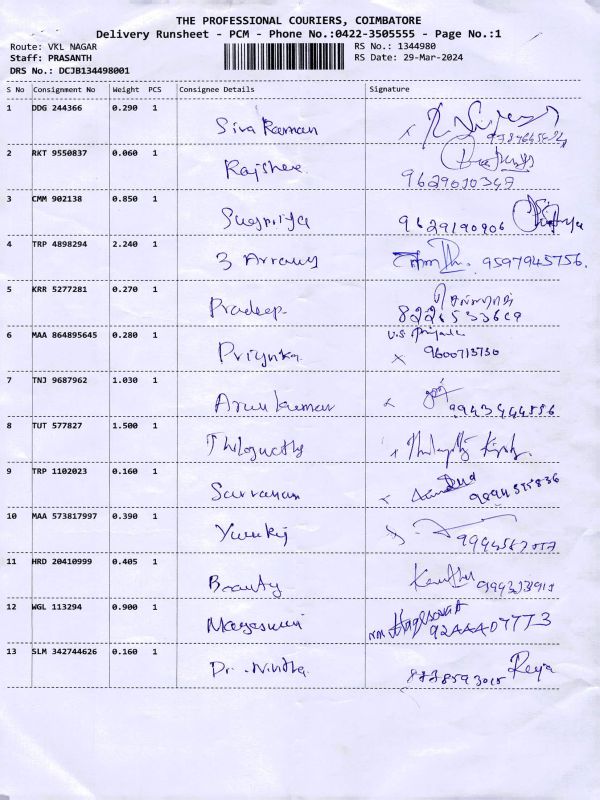 THE PROFESSIONAL COURIERS, COIMBATORE
Delivery Runsheet - PCM - Phone No.:0422-3505555 - Page No.:1
Route: VKL NAGAR RS No.: 1344980
Staff: PRASANTH RS Date: 29-Mar-2024
DRS No.: DCJB134498001
S No Consignment No Weight PCS Consignee Details Signature
1 DDG 244366 0.290 1
Siva Raman
2 RKT 9550837 0.060 1
Rajshree
9629010347
3 CMM 902138 0.850 1
Suapriya 9629190906
4 TRP 4898294 2.240 1
3 Arrows 9597945756.
5 KRR 5277281 0.270 1
Pradeep
6 MAA 864895645 0.280 1
Priyanka 9600713730
7 TNJ 9687962 1.030 1
Arun kumar 9943444556
8 TUT 577827 1.500 1
9 TRP 1102023 0.160 1
Sarvanan 9894555836
10 MAA 573817997 0.390 1
11 HRD 20410999 0.405 1
Beauty
12 WGL 113294 0.900 1
13 SLM 342744626 0.160 1
Dr. Nivitha